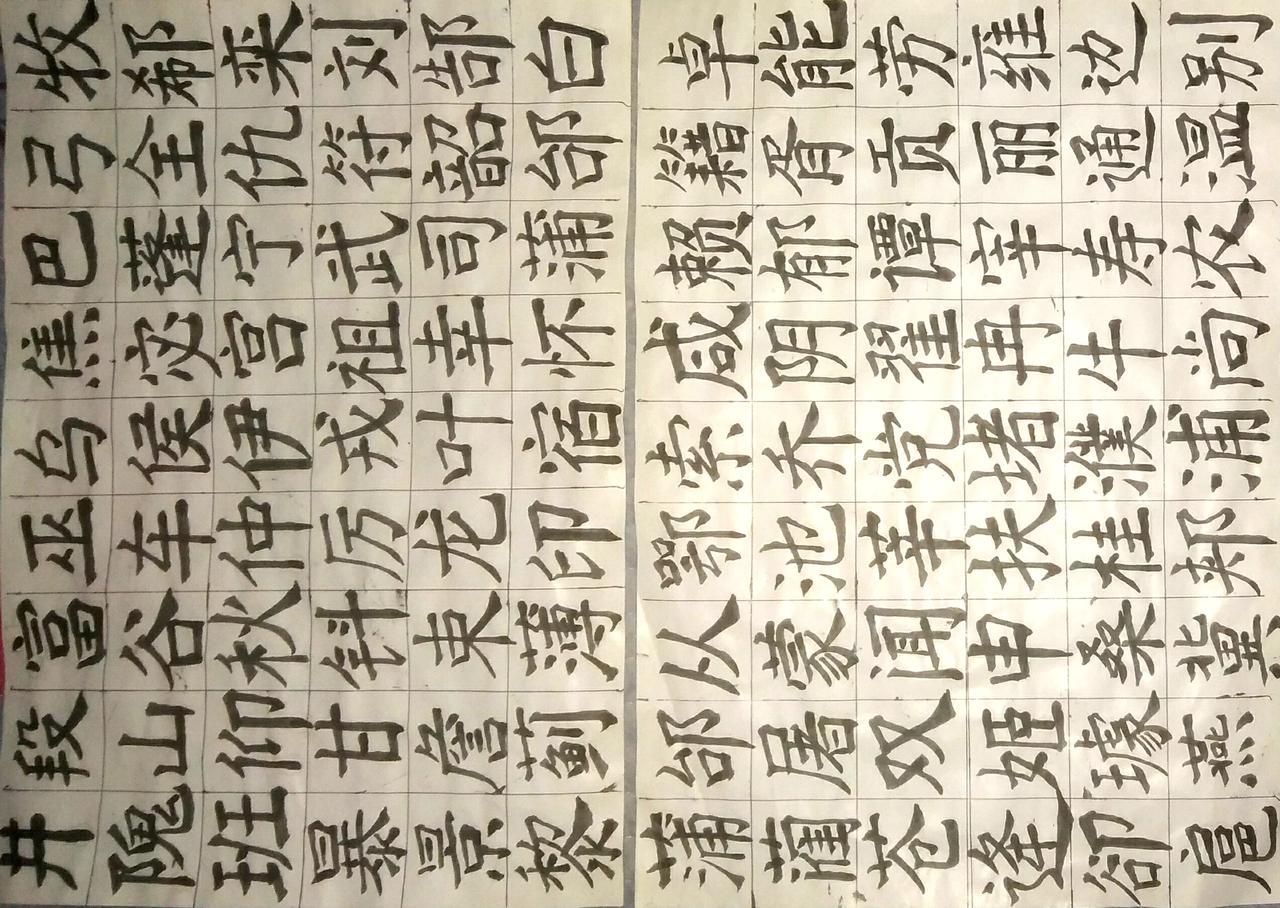 井段富巫乌焦巴弓牧
隗山谷车侯宓蓬全郗
班仰秋仲伊宫宁仇栾
暴甘钭厉戎祖武符刘
景詹束龙叶幸司韶郜
黎蓟薄印宿怀蒲邰白
蒲邰从鄂索咸赖籍卓
蔺屠蒙池乔阴郁胥能
苍双闻莘党翟谭贡劳
逄姬申扶堵冉宰丽雍
郤璩桑桂濮牛寿通边
扈燕冀郏浦尚农温别